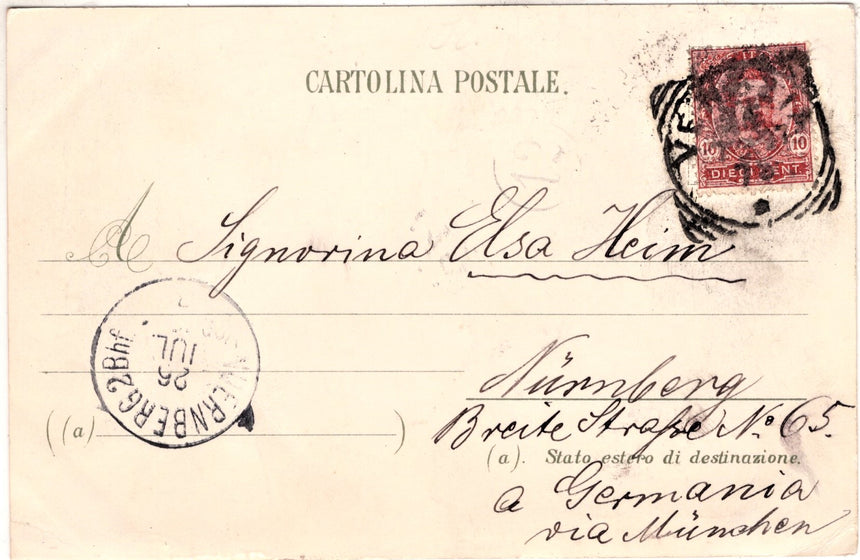 CARTOLINA POSTALE.
10 10
DIECI CENT.
A Signorina Elsa Heim
NUERNBERG 2 Bhf.
26
JUL.
Nürnberg
Breite Straße No. 65.
(a)
(a). Stato estero di destinazione.
a Germania
via München